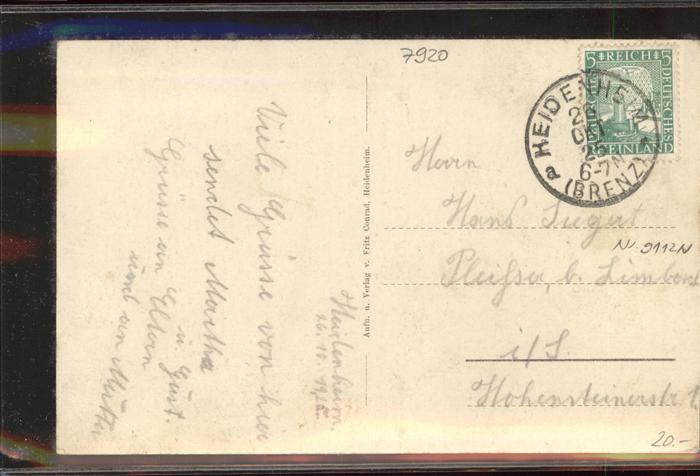 7920
5 REICH 5
DEUTSCHES
RHEINLAND
HEIDENHEIM
26
OKT
25
6-7 N
a (BRENZ)
Viele Grüsse von hier
sendet Martha
u. Gust.
Grüsse an Eltern
und an Mutter
Heidenheim,
26. 10. 1925.
Aufn. u. Verlag v. Fritz Conrad, Heidenheim.
Herrn
Hans Siegert
Nr. 9112N
Pleißa, b. Limbach
i/S.
Hohensteinerstr. 1
20.-